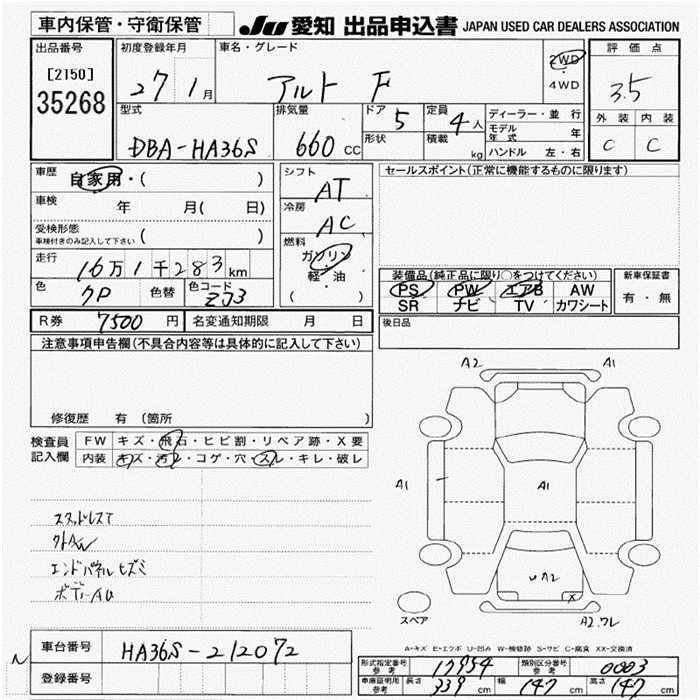 車内保管・守衛保管
JU 愛知 出品申込書 JAPAN USED CAR DEALERS ASSOCIATION
出品番号
[2150]
35268
初度登録年月
27 1月
車名・グレード
アルト F
2WD
・
4WD
評価点
3.5
外装 内装
C C
型式
DBA-HA36S
排気量
660 CC
ドア 5
形状
定員 4人
積載 kg
ディーラー・並行
モデル年式 年
ハンドル 左・右
車歴 自家用・( )
車検 年 月( 日)
受検形態
車検付きのみ記入して下さい ( )
走行 16万1千283km
色 クロ 色替 色コード ZJ3
シフト AT
冷房 AC
燃料
ガソリン
・
軽・油
( )
セールスポイント(正常に機能するものに限ります)
装備品(純正品に限り〇をつけてください)
PS PW エアB AW
SR ナビ TV カワシート
新車保証書
有・無
R券 7500 円 名変通知期限 月 日
後日品
注意事項申告欄(不具合内容等は具体的に記入して下さい)
修復歴 有 (箇所 )
検査員記入欄
FW キズ・飛石・ヒビ割・リペア跡・X要
内装 キズ・汚れ・コゲ・穴・スレ・キレ・破レ
スタッドレスT
クトAW
エンドパネルヒズミ
ボデーAU
A2
A1
A1
A1
A1
UA2
X
スペア
A2.ワレ
A-キズ E-エクボ U-凹み W-補修跡 S-サビ C-腐食 XX-交換済
N
車台番号 HA36S-212072
登録番号
型式指定番号 参考 17954 類別区分番号 参考 0003
車庫証明用 参考 長さ 339 cm 幅 147 cm 高さ 147 cm